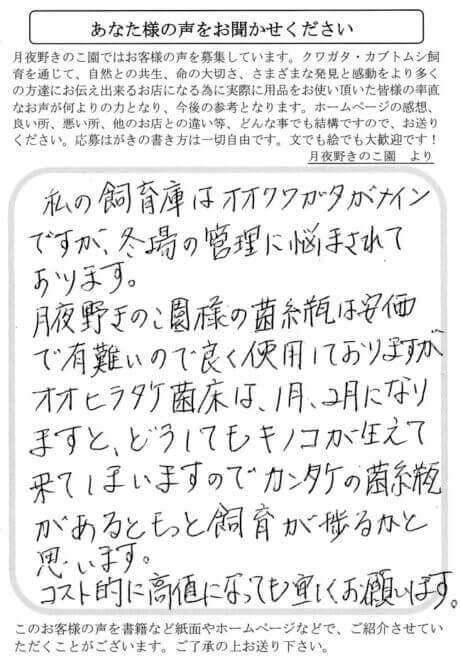 あなた様の声をお聞かせください
月夜野きのこ園ではお客様の声を募集しています。クワガタ・カブトムシ飼
育を通じて、自然との共生、命の大切さ、さまざまな発見と感動をより多く
の方達にお伝え出来るお店になる為に実際に用品をお使い頂いた皆様の率直
なお声が何よりの力となり、今後の参考となります。ホームページの感想、
良い所、悪い所、他のお店との違い等、どんな事でも結構ですので、お送り
ください。応募はがきの書き方は一切自由です。文でも絵でも大歓迎です！
月夜野きのこ園　より
私の飼育庫はオオクワガタがメイン
ですが、冬場の管理に悩まされて
おります。
月夜野きのこ園様の菌糸瓶は安価
で有難いので良く使用しておりますが
オオヒラタケ菌床は、1月、2月になり
ますと、どうしてもキノコが生えて
来てしまいますのでカンタケの菌糸瓶
があるともっと飼育が捗るかと
思います。
コスト的に高値になっても宜しくお願いします。
このお客様の声を書籍など紙面やホームページなどで、ご紹介させてい
ただくことがございます。ご了承の上お送り下さい。